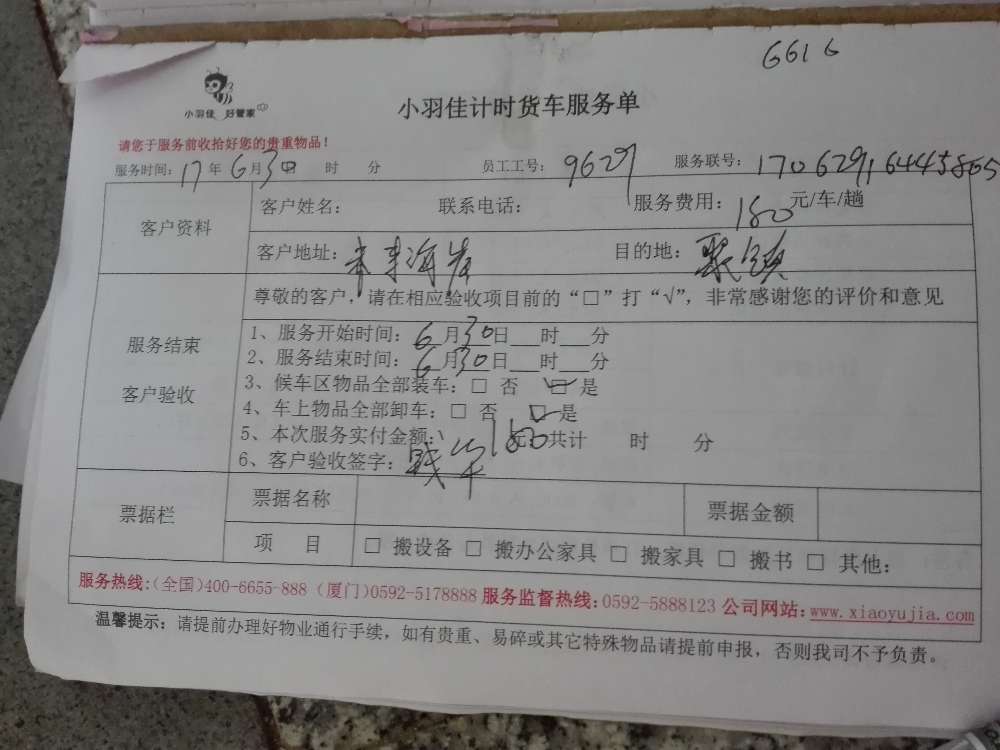 6616
小羽佳 好管家
小羽佳计时货车服务单
请您于服务前收拾好您的贵重物品！
服务时间：17年6月30日 时 分 员工工号：9629 服务联号：17062916445865
客户资料 客户姓名： 联系电话： 服务费用：180元/车/趟
客户地址：未来海岸 目的地：聚镇
尊敬的客户，请在相应验收项目前的“□”打“√”，非常感谢您的评价和意见
服务结束
客户验收
1、服务开始时间：6月30日___时___分
2、服务结束时间：6月30日___时___分
3、候车区物品全部装车：□ 否 ☑ 是
4、车上物品全部卸车：□ 否 ☑ 是
5、本次服务实付金额：180元 共计 时 分
6、客户验收签字：
票据栏 票据名称 票据金额
项 目 □ 搬设备 □ 搬办公家具 □ 搬家具 □ 搬书 □ 其他：
服务热线：（全国）400-6655-888（厦门）0592-5178888 服务监督热线：0592-5888123 公司网站：www.xiaoyujia.com
温馨提示：请提前办理好物业通行手续，如有贵重、易碎或其它特殊物品请提前申报，否则我司不予负责。